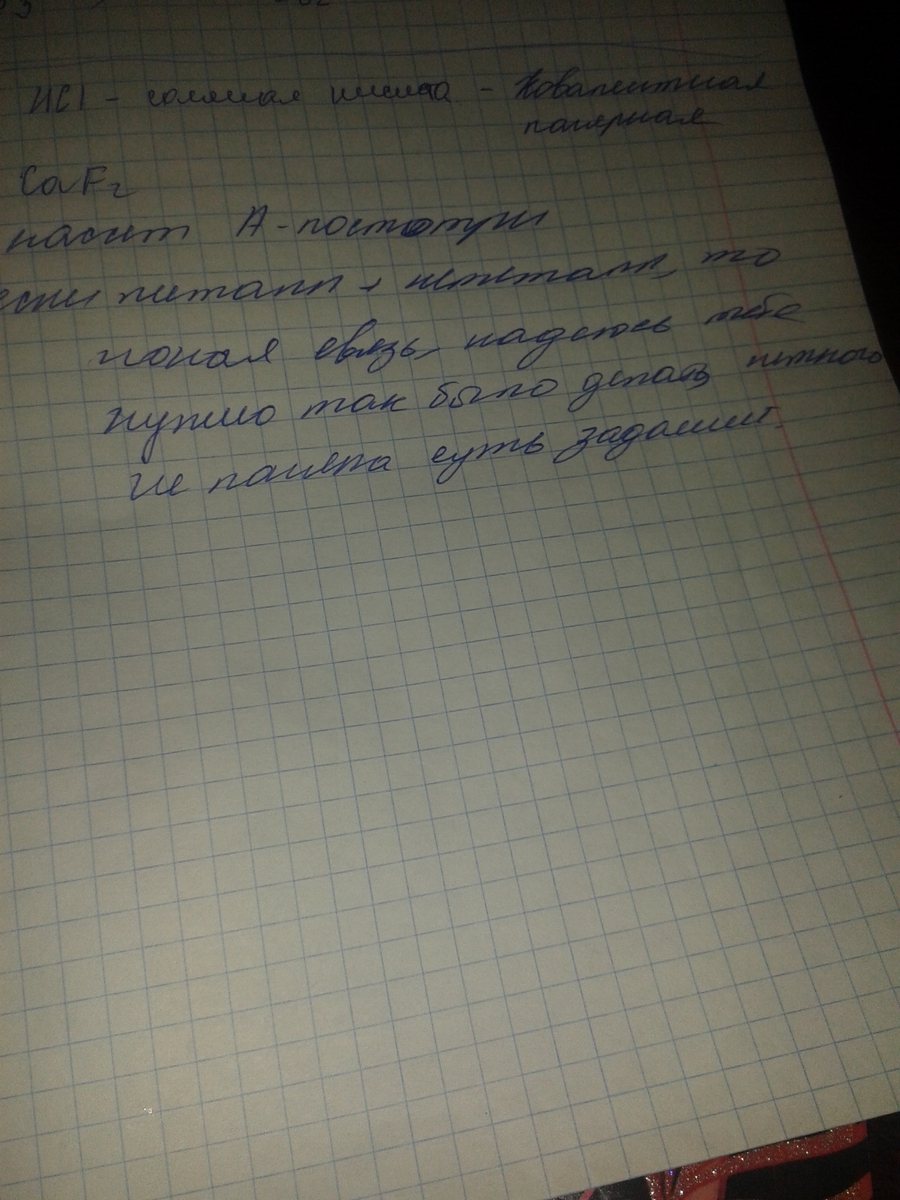 HCl - соляная кислота - Ковалентная
полярная
CaF2
А-
если металл + неметалл, то
ионая связь, надеюсь тебе
нужно так было делать немного
не поняла суть задания.